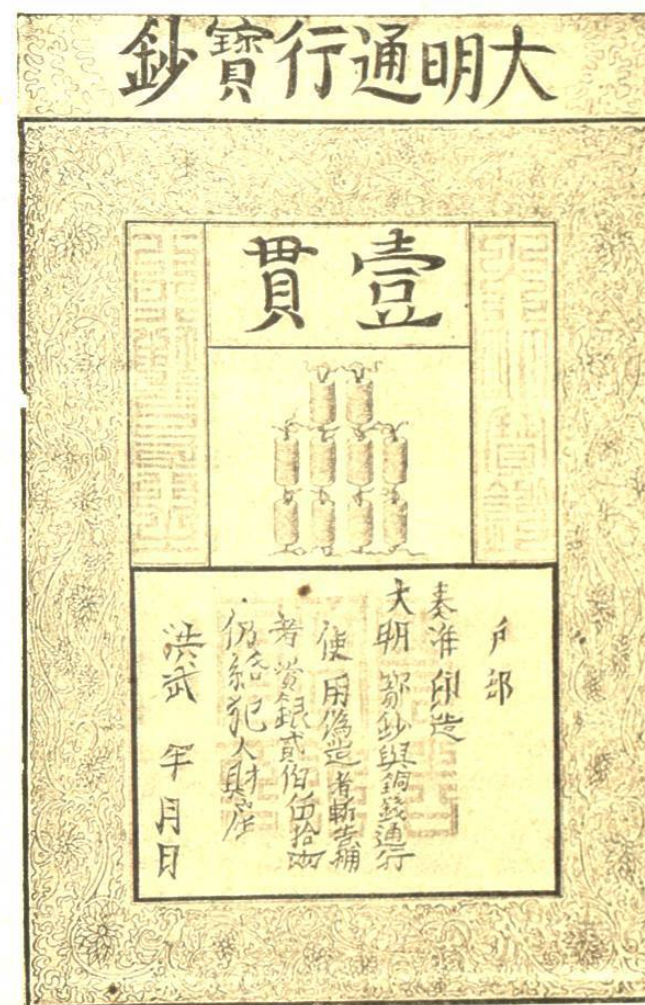 大明通行寶鈔
壹貫
戶部
奏准印造
大明寳鈔與銅錢通行
使用僞造者斬告捕
者賞銀貳伯伍拾兩
仍給犯人財產
洪武 年月日